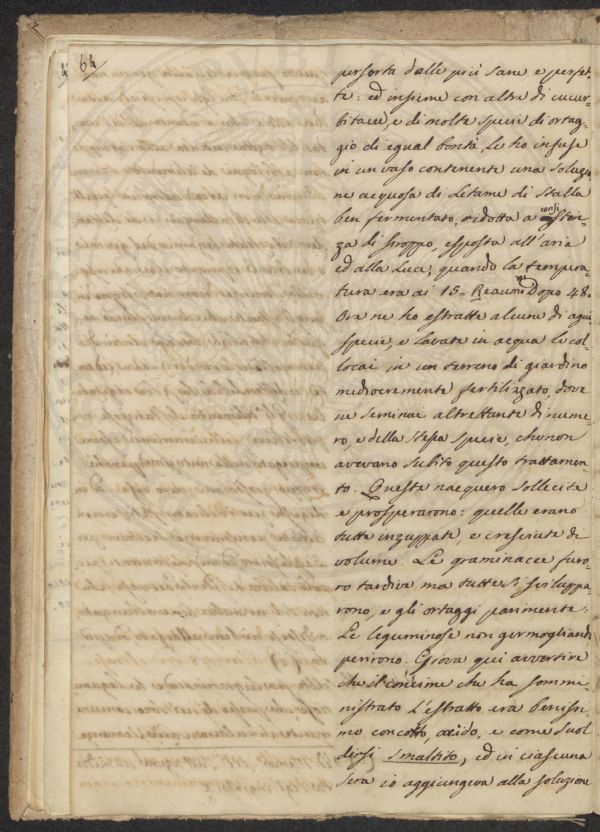 64
persorta dalle più sane e perfet-
te: ed insieme con altre di cucur-
bitacee, e di molte specie di ortag-
gio di egual bontà, Le ho infuse
in un vaso contenente una soluzio-
ne acquosa di Letame di Stalla
ben fermentato, ridotta a consisten-
za di siroppo, esposta all'aria
ed alla Luce; quando la tempera-
tura era ai 15= Reaum. Dopo 48.
Ore ne ho estratte alcune di ogni
specie, e lavate in acqua le col-
locai in un terreno di giardino
mediocremente fertilizzato, dove
ne seminai altrettante di nume-
ro, e della stessa specie, che non
avevano subito questo trattamen-
to. Queste nacquero sollecite
e prosperarono: quelle erano
tutte inzuppate, e cresciute di
volume. Le graminacee furo-
ro tardive ma tutte si sviluppa-
rono, e gli ortaggi parimente:
Le leguminose non germogliando
perirono. Giova qui avvertire
che il concime che ha sommi-
nistrato l'estratto era benissi-
mo concotto, acido, e come suol
dirsi smaltito, ed in ciascuna
sera io aggiungeva alla soluzione